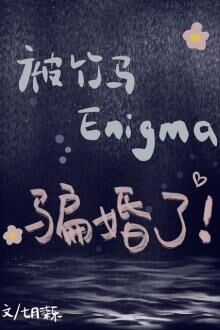 被竹马
Enigma
骗婚了!
文/七月栗